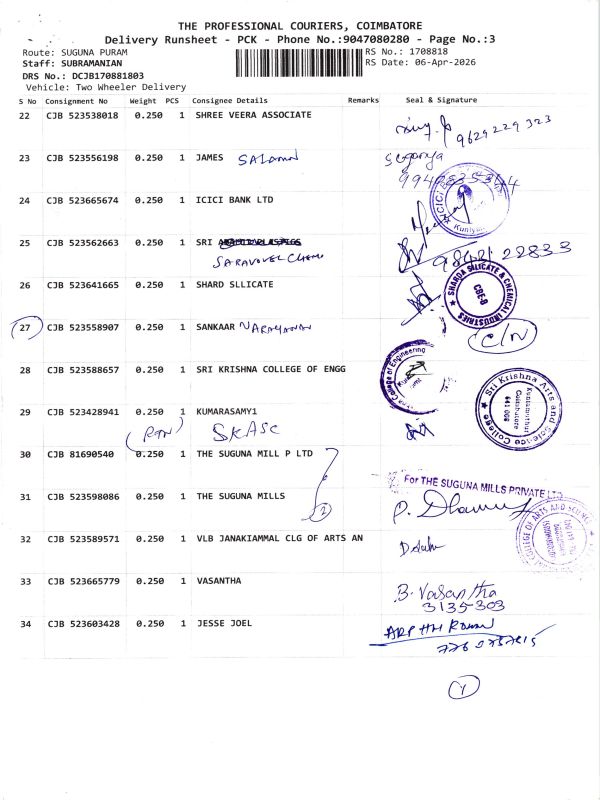 THE PROFESSIONAL COURIERS, COIMBATORE
Delivery Runsheet - PCK - Phone No.:9047080280 - Page No.:3
Route: SUGUNA PURAM
RS No.: 1708818
Staff: SUBRAMANIAN
RS Date: 06-Apr-2026
DRS No.: DCJB170881803
Vehicle: Two Wheeler Delivery
S No Consignment No Weight PCS Consignee Details Remarks Seal & Signature
22 CJB 523538018 0.250 1 SHREE VEERA ASSOCIATE
9629229323
23 CJB 523556198 0.250 1 JAMES SALOMON
Suganya
24 CJB 523665674 0.250 1 ICICI BANK LTD
25 CJB 523562663 0.250 1 SRI
SARAVOVEL CHEMI
98421 22833
26 CJB 523641665 0.250 1 SHARD SLLICATE
SHARDA SILICATE & CHEMICAL INDUSTRIES
CBE-8
27 CJB 523558907 0.250 1 SANKAAR NARAYANAN
C/N
28 CJB 523588657 0.250 1 SRI KRISHNA COLLEGE OF ENGG
College of Engineering
Sri Krishna Arts and Science College
Kuniamuthur
Coimbatore
641 008
29 CJB 523428941 0.250 1 KUMARASAMY1
(RTN) SKASC
30 CJB 81690540 0.250 1 THE SUGUNA MILL P LTD
For THE SUGUNA MILLS PRIVATE LTD
31 CJB 523598086 0.250 1 THE SUGUNA MILLS
2
32 CJB 523589571 0.250 1 VLB JANAKIAMMAL CLG OF ARTS AN
COLLEGE OF ARTS AND SCIENCE
33 CJB 523665779 0.250 1 VASANTHA
B. Vasantha
3135303
34 CJB 523603428 0.250 1 JESSE JOEL